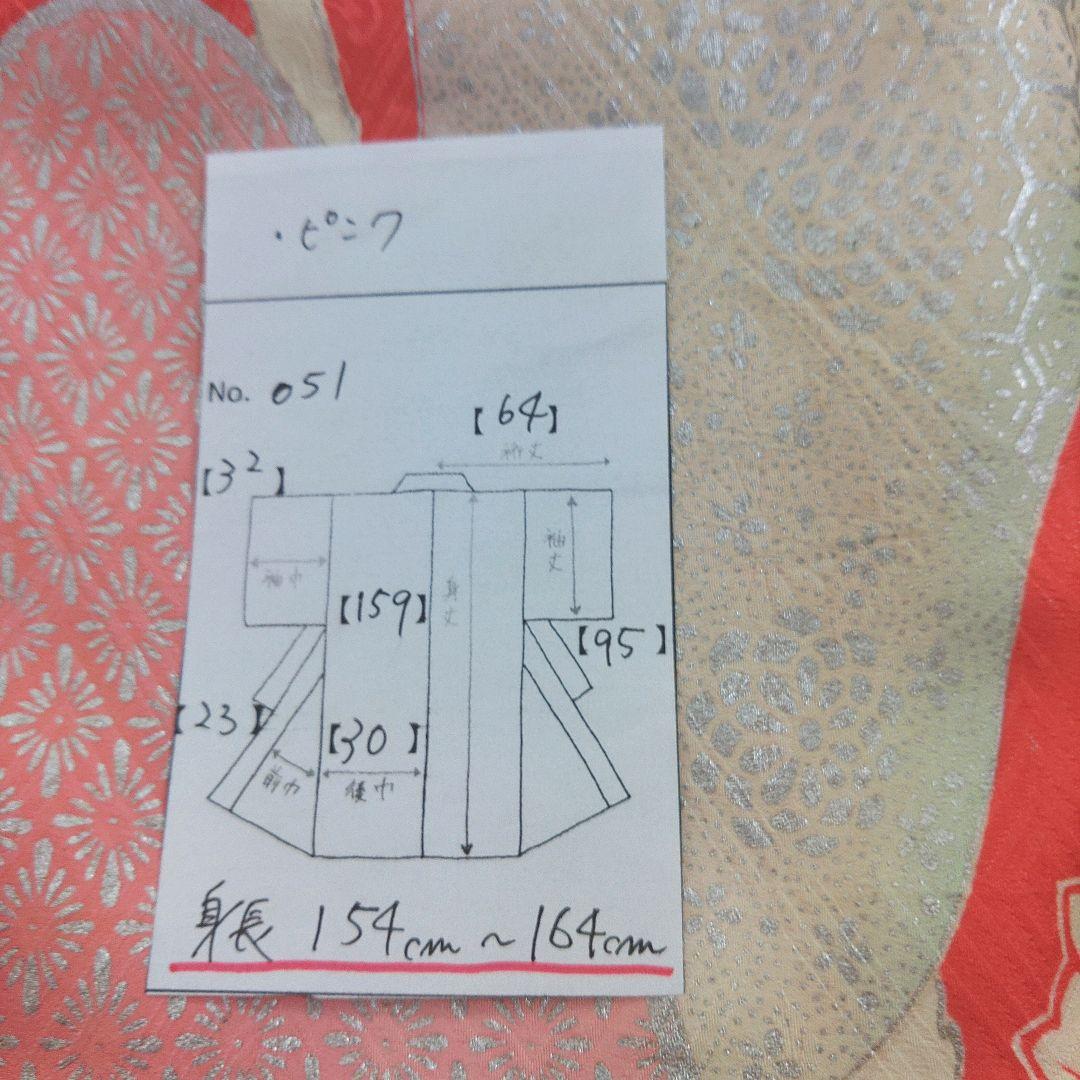 ・ピンク
No. 051
【64】
裄丈
【32】
袖巾
袖丈
【159】
身丈
【95】
【23】
【30】
前巾
後巾
身長 154cm ~ 164cm